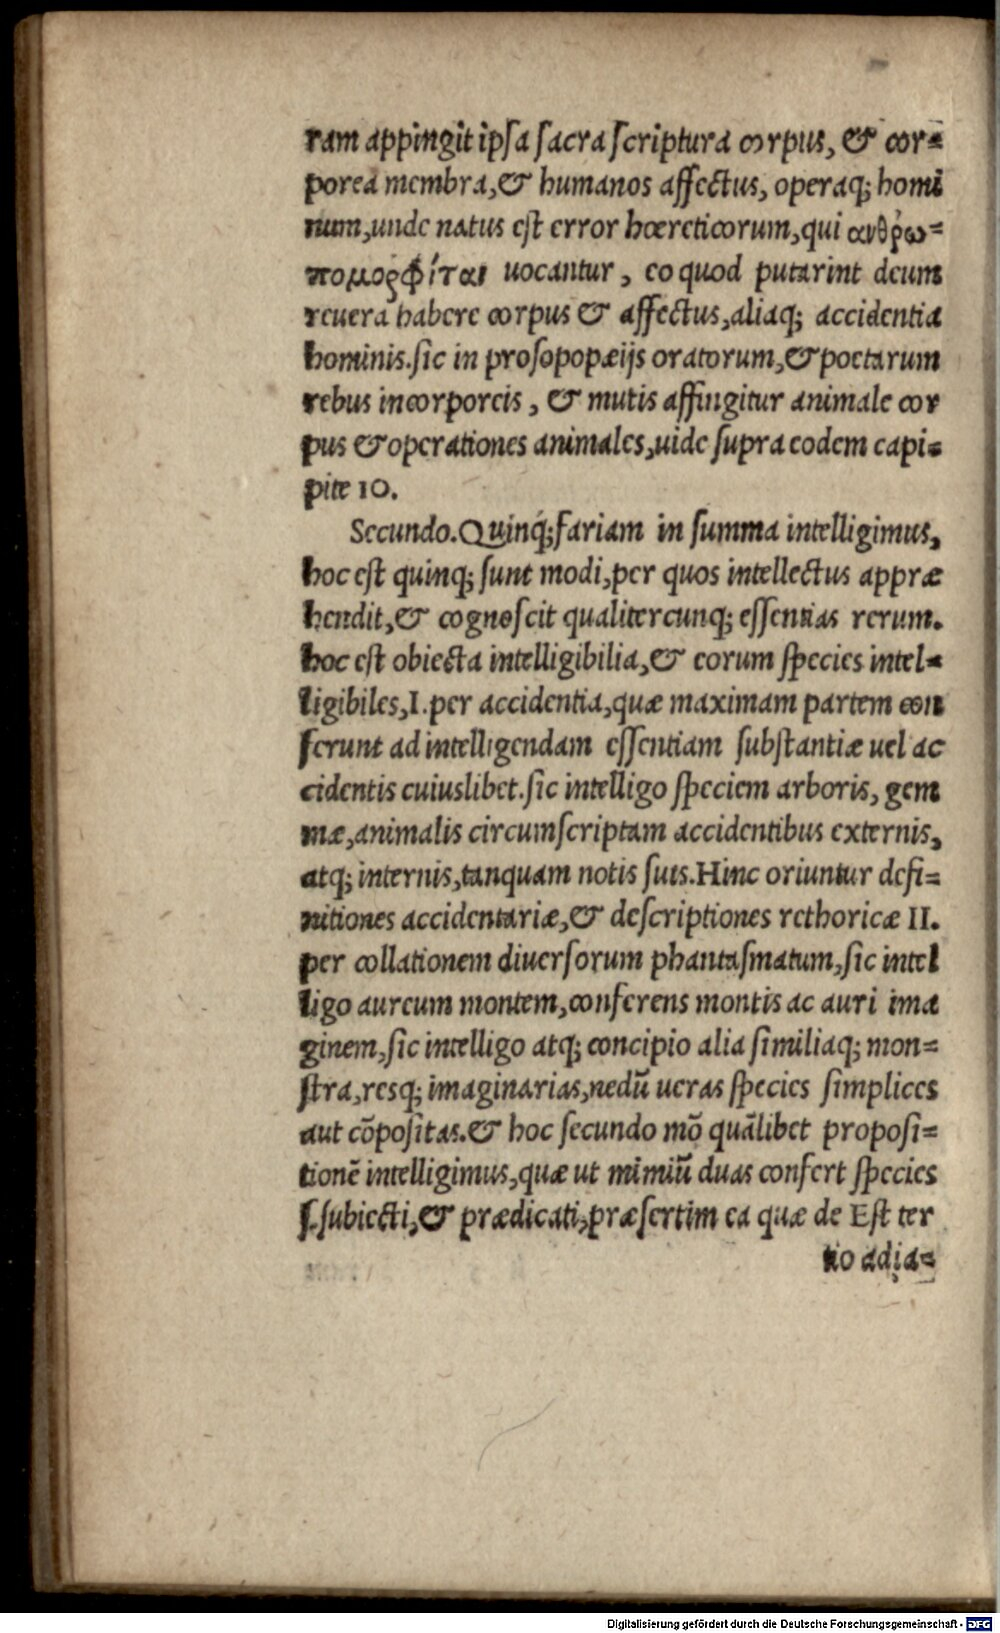 ram appingit ipsa sacra scriptura corpus, & cor=
porea membra, & humanos affectus, operaq; homi
num, unde natus est error hæreticorum, qui ανθρω=
πομορφίται uocantur, eo quod putarint deum
reuera habere corpus & affectus, aliaq; accidentia
hominis. sic in prosopopæijs oratorum, & poetarum
rebus incorporeis, & mutis affingitur animale cor
pus & operationes animales, uide supra eodem capi=
pite 10.
Secundo. Quinq́;fariam in summa intelligimus,
hoc est quinq; sunt modi, per quos intellectus appræ
hendit, & cognoscit qualitercunq; essentias rerum.
hoc est obiecta intelligibilia, & eorum species intel=
ligibiles, I. per accidentia, quæ maximam partem con
ferunt ad intelligendam essentiam substantiæ uel ac
cidentis cuiuslibet. sic intelligo speciem arboris, gem
mæ, animalis circumscriptam accidentibus externis,
atq; internis, tanquam notis suis. Hinc oriuntur defi=
nitiones accidentariæ, & descriptiones rethoricæ II.
per collationem diuersorum phantasmatum, sic intel
ligo aureum montem, conferens montis ac auri ima
ginem, sic intelligo atq; concipio alia similiaq; mon=
stra, resq; imaginarias, nedū ueras species simplices
aut cōpositas. & hoc secundo mō quālibet proposi=
tionē intelligimus, quæ ut mimiū duas confert species
s. subiecti, & prædicati, præsertim ea quæ de Est ter
tio adia=
Digitalisierung gefördert durch die Deutsche Forschungsgemeinschaft - DFG